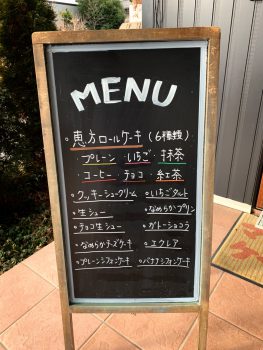 MENU
。恵方ロールケーキ (6種類)
プレーン ・いちご ・抹茶
・コーヒー ・チョコ ・紅茶
。クッキーシュークリーム 。いちごタルト
。生シュー 。なめらかプリン
。チョコ生シュー 。ガトーショコラ
。なめらかチーズケーキ 。エクレア
。プレーンシフォンケーキ 。バナナシフォンケーキ